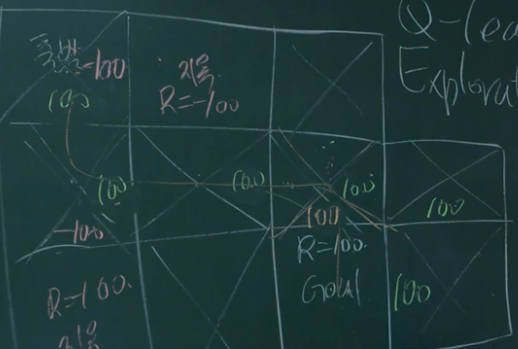 Q-lea
Explorat
출발 -100
지옥
R=-100
100
100
100
100
100
-100
100
R=100.
Goal
100
R=-100.
지옥